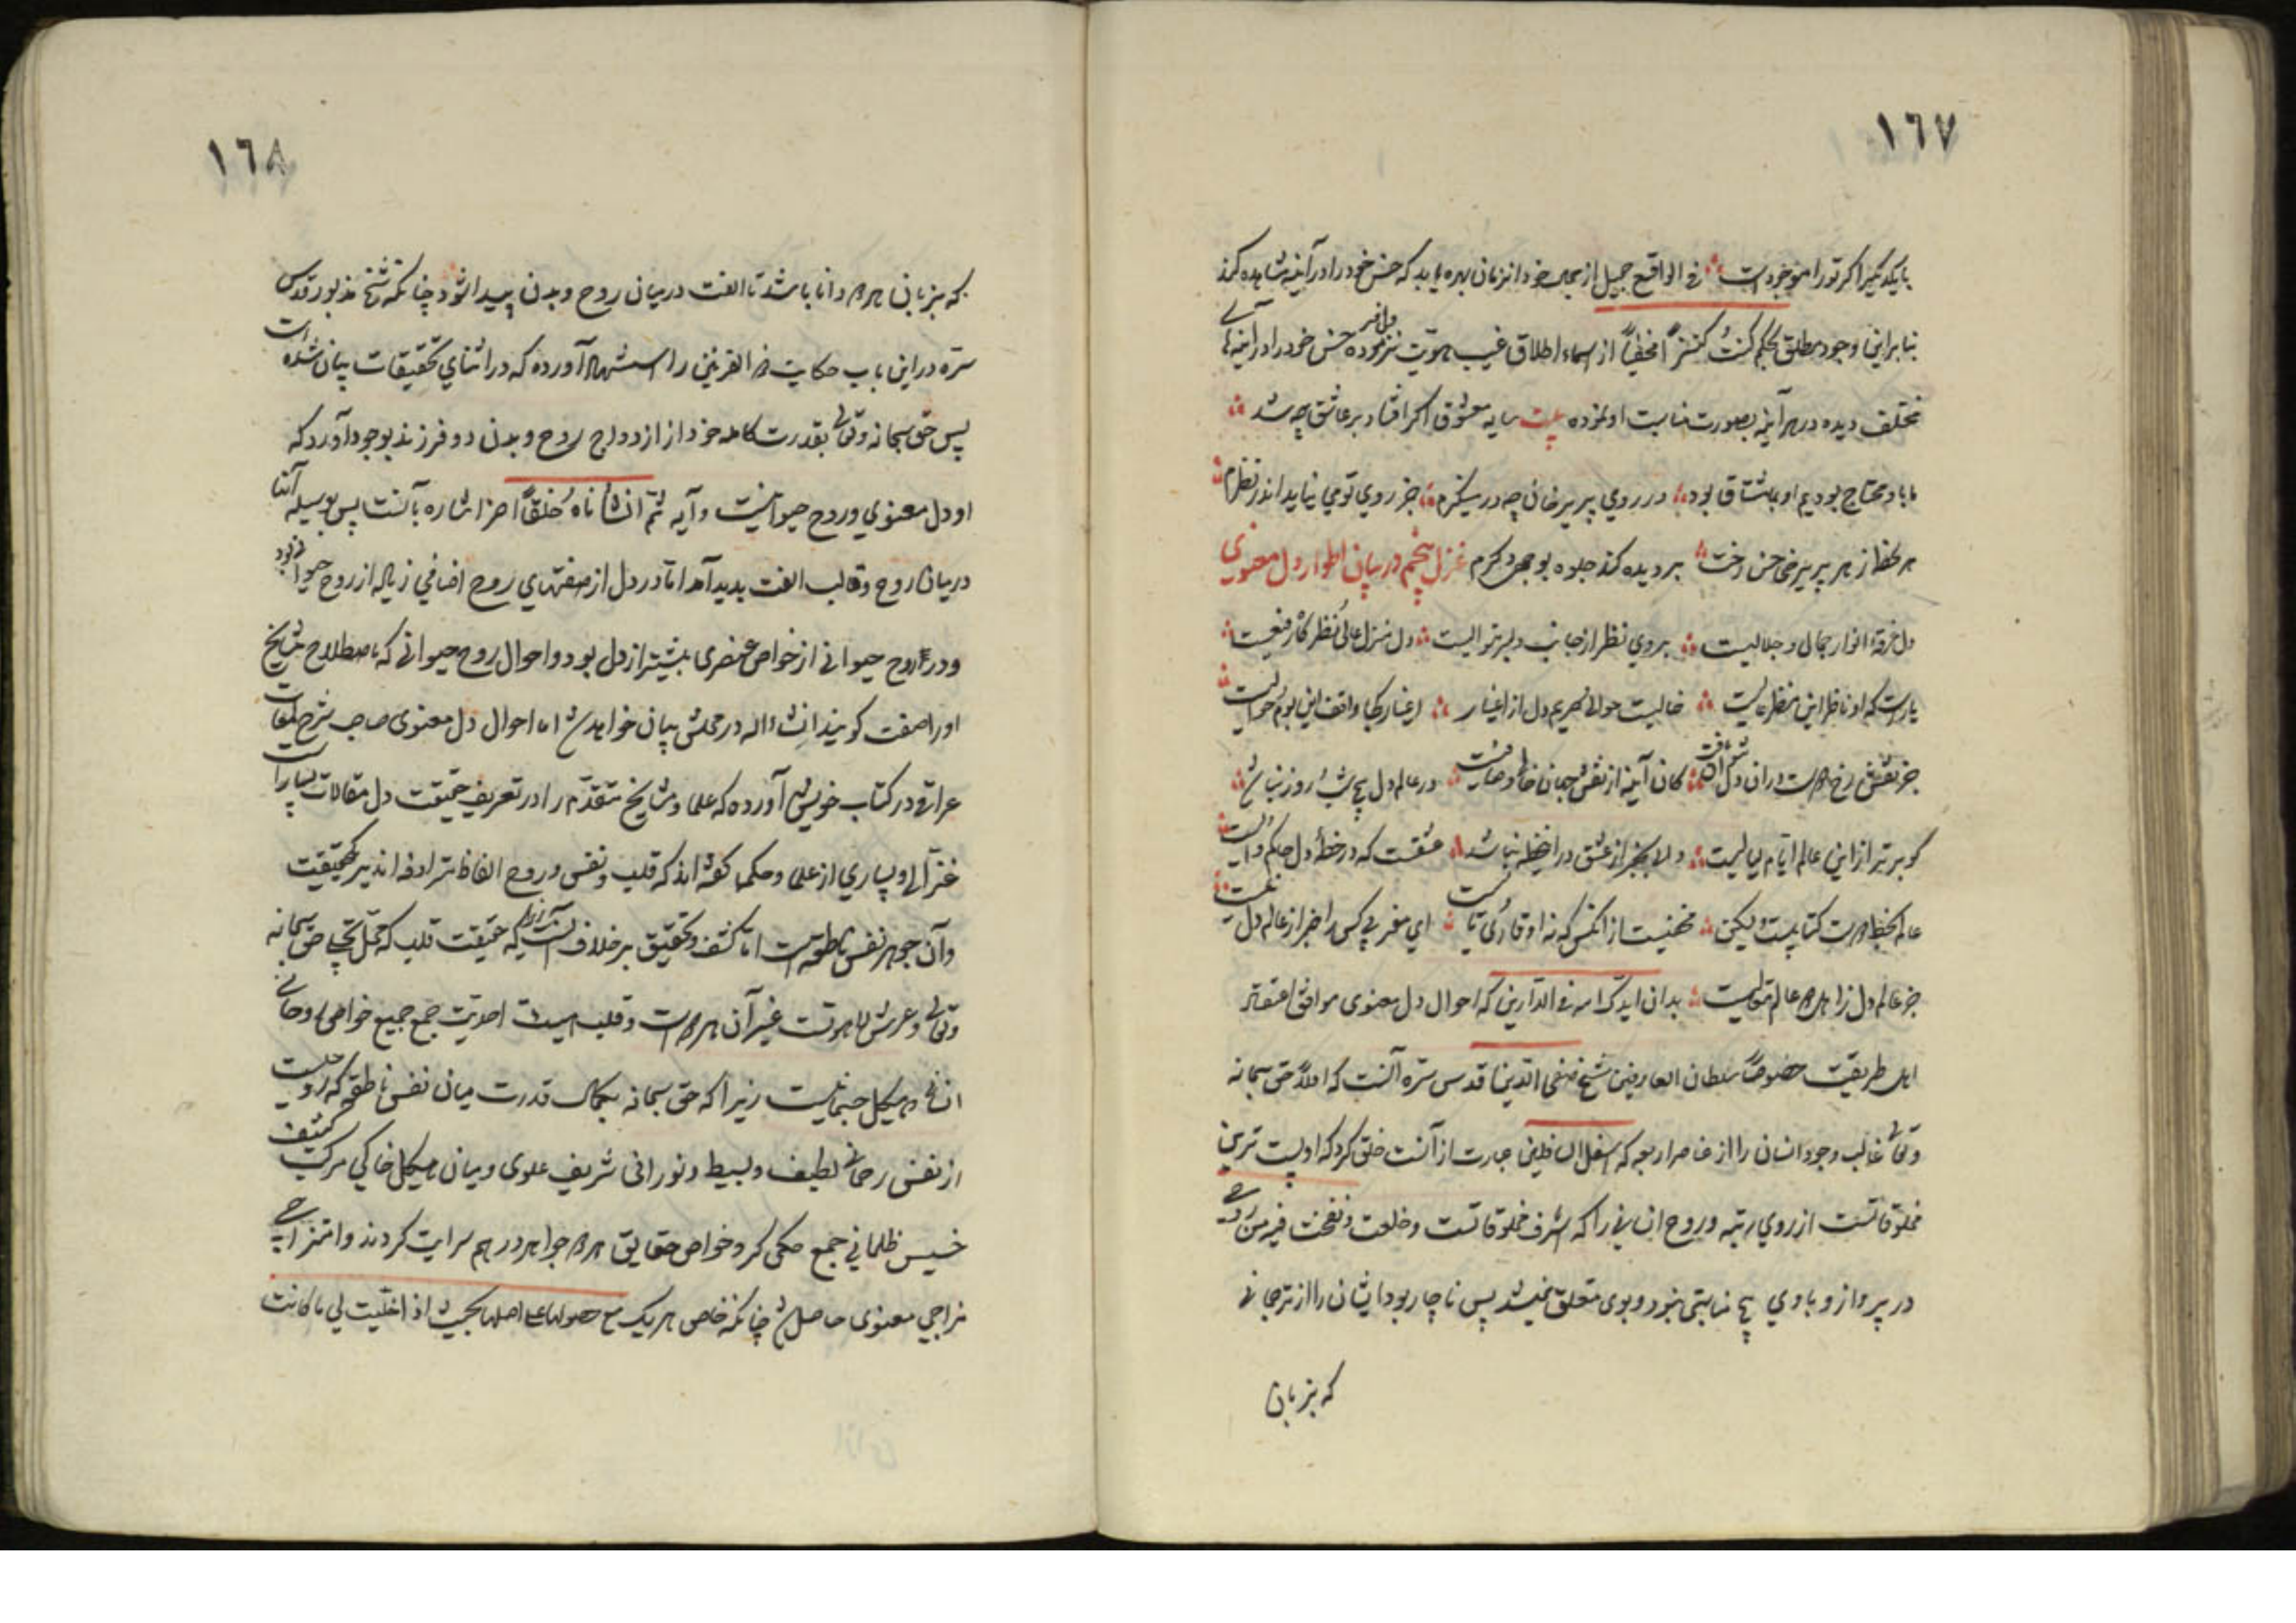 ١٦٧
بایکدیگر اکر تورا موجودست في الواقع جمیل از جمال خود انزمان بهره یابد که حسن خود را در آینه مشاهده کند
بنابراین وجود مطلق بحکم کنتُ کنزاً مخفیاً از سماء اطلاق غیب هویت نزول فرموده حسن خود را در آینهای
مختلف دیده در هر آینه بصورت مناسبت او نموده بیت سایه معشوق اکر افتاد بر عاشق چه شد
ما باو محتاج بودیم او بما مشتاق بود در روي پریرخان چه در مینکرم جز روی تو می نیاید اندر نظرم
هر لحظه از هر پریرخی حسن رخت بر دیده کند جلوه بوجه دکرم غزل پنجم در بیان اطوار دل معنوی
دل غرقهٔ انوار جمالی و جلالیست بر وی نظر از جانب دلبر متوالیست دل منزل عالی نظر کاه رفیعست
یارست که او ناظر این منظر عالیست خالیست حوالی حریم دل از اغیار اغیار کجا واقف این بوم حوالیست
جز نقش رخ دوست در آن دل نتوان یافت کان آینه از نقش جهان صافی و خالیست در عالم دل هیچ شب و روز نباشد
کو برتر از این عالم ایّام و لیالیست والا بجز از عشق در آن خطه نباشد عشقست که در خطهٔ دل حاکم و والیست
عالم بخط دوست کتابیست ولیکن مخفیست از انکس که نه او قاری و تالیست اي مغربی کس را خبر از عالم دل نیست
جز عالم دل زانکه دل عالم عالیست بدان ایدک الله في الدارین که احوال دل معنوی موافق اعتقاد
اهل طریقت خصوصاً سلطان العارفین شیخ صفی الدین قدس سره آنست که اولاً حق سبحانه
وتعالی قالب وجود انسان را از عناصر اربعه که اسفل السافلین عبارت از آنست خلق کرد که او پست ترین
مخلوقاتست از روي رتبه و روح انسانی را که اشرف مخلوقاتست و خلعت ونفخت فیه من روحی
در بر او از و باوي هیچ مناسبتی نبود و بوی متعلق نمیشد پس ناچار بود ایشان را از ترجمانی
که بزبان
١٦٨
که بزبان هر دو دانا باشد تا الفت در میان روح و بدن پیدا شود چنانکه شیخ مذبور قدس
سرّه در این باب حکایت ذو القرنین را استشهاد آورده که در اثنای تحقیقات بیان شده است
پس حق سبحانه وتعالی بقدرت کامله خود از ازدواج روح و بدن دو فرزند بوجود آورد که
او دل معنوي وروح حیوانیست و آیه ثمّ انشأناه خلقاً آخر اشاره بآنست پس بوسیله آنها
در میان روح وقالب الفت پدید آمد اما در دل از صفتهاي روح اضافي زیاده از روح حیوانی بود
و در روح حیوانی از خواص عنصری بیشتر از دل بود و احوال روح حیوانی که باصطلاح مشایخ
او را صفت کویند انشاء الله در محلش بیان خواهد شد اما احوال دل معنوی صاحب شرح لمعات
عراقی در کتاب خویش آورده که علما و مشایخ متقدّم را در تعریف حقیقت دل مقالات بسیار است
غزالی و بسیاري از علما و حکما کفته اند که قلب ونفس و روح الفاظ مترادفه اند بر یکحقیقت
وآن جوهر نفس ناطقه است اما کشف وتحقیق بر خلاف آنست زیرا که حقیقت قلب که محل تجلی حق سبحانه
وتعالی وعرش لاهوتست غیر آن هر دوست و قلب هیئت احدیّت جمع جمیع خواص روحانی
انسانی و هیکل جسمانیست زیرا که حق سبحانه بکمال قدرت میان نفس ناطقه که روحیست
از نفس رحمانی لطیف و بسیط و نورانی شریف علوی و میان هیکل خاکی مرکب کثیف
خسیس ظلمانی جمع حکمی کرد و خواص حقایق هر دو جواهر در هم سرایت کردند و امتزاجی
مزاجي معنوی حاصل شد چنانکه خاص هر یک مع حصولها علی اصلها بحیث اذا خلیت لی ما کانت